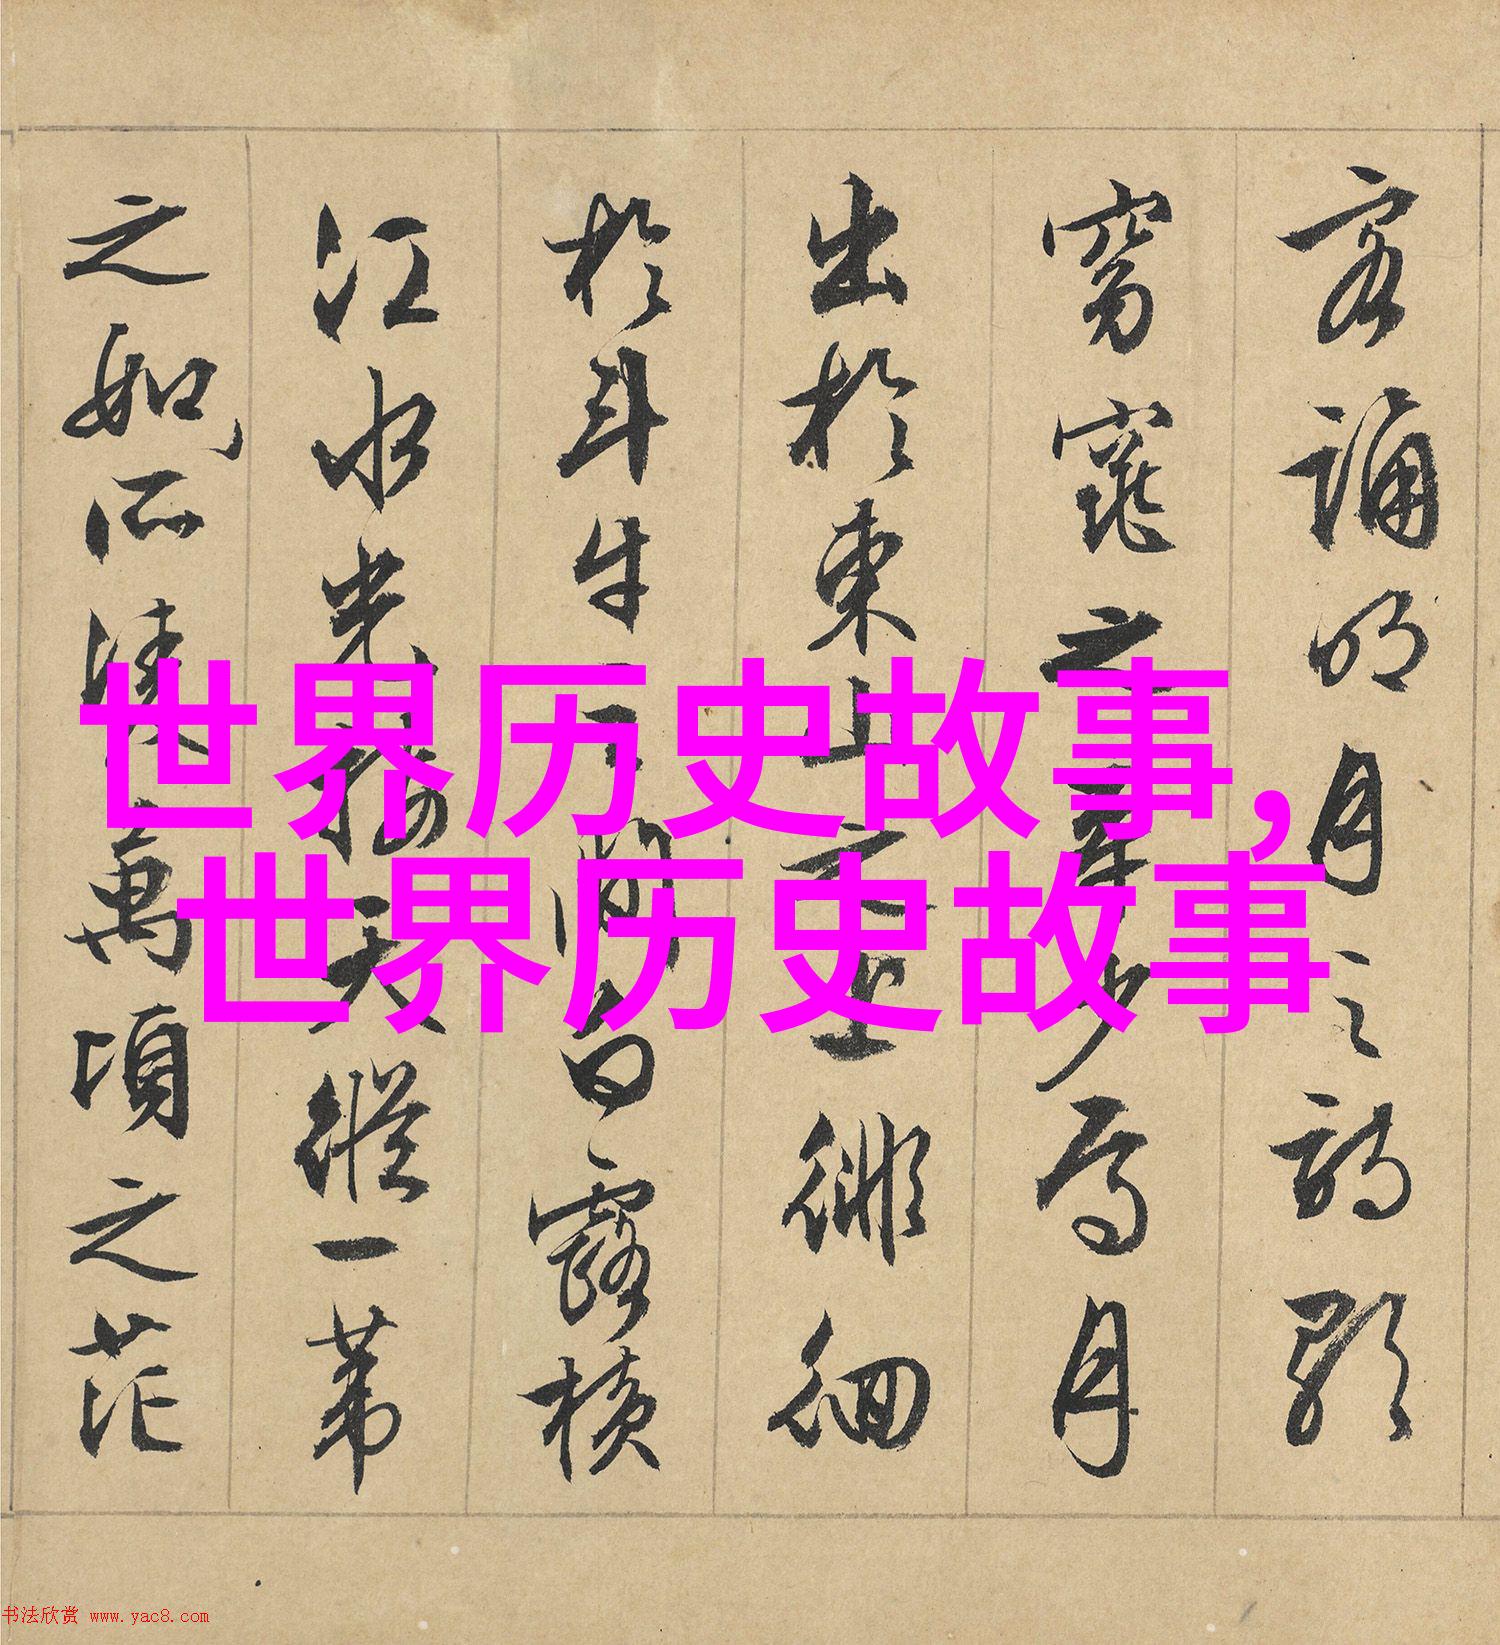 客誦明月之詩歌
窈窕之章少焉月
出於東山之上徘徊
於斗牛之間白露橫
江水光接天縱一葦
之如所淩萬頃之茫
世界历史故事,
世界历史故事
书法欣赏 www.yac8.com